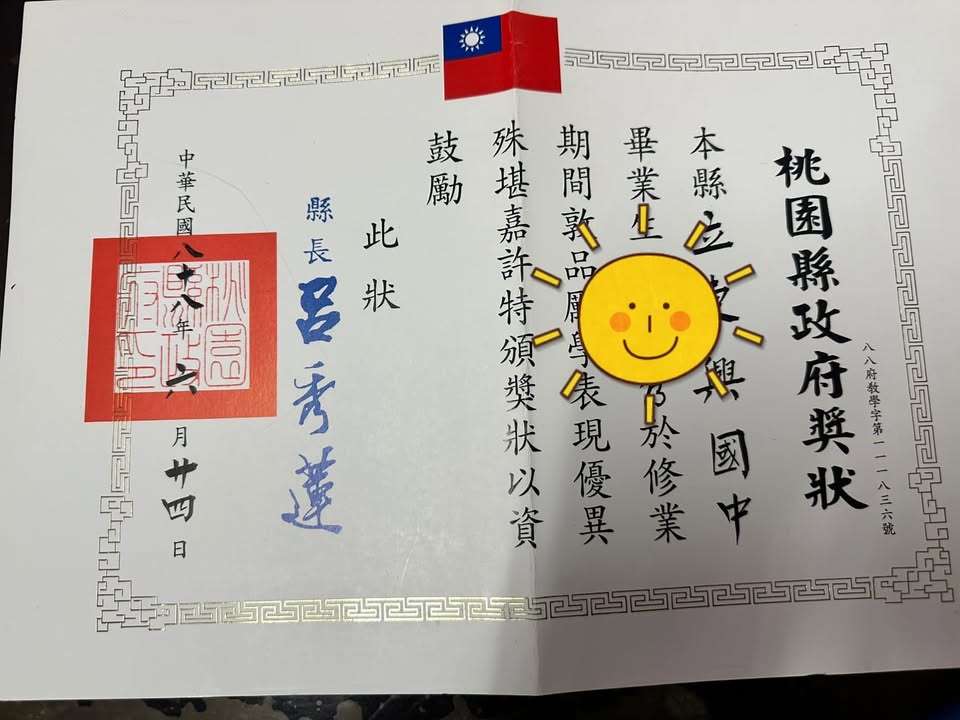 八八府教學字第一一一八三六號
桃園縣政府獎狀
本縣立興國中
畢業生於修業
期間敦品勵學表現優異
殊堪嘉許特頒獎狀以資
鼓勵
此狀
縣長呂秀蓮
中華民國八十八年六月廿四日
桃園縣政府印